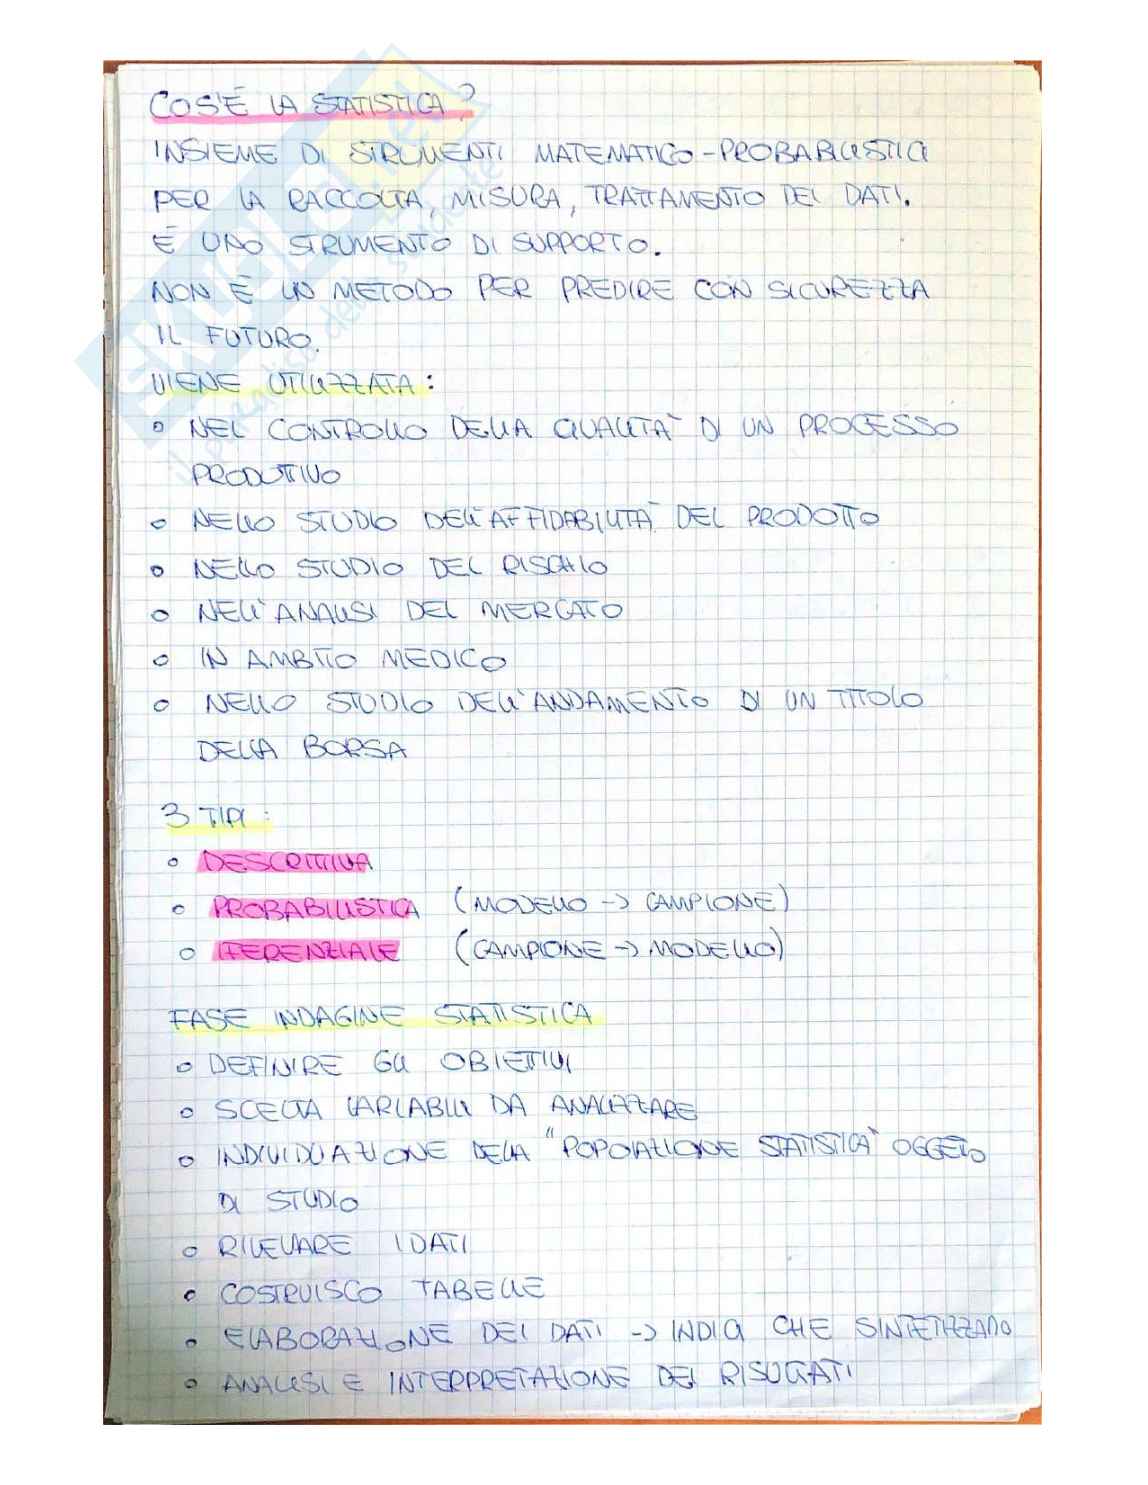 COS'È LA STATISTICA?
INSIEME DI STRUMENTI MATEMATICO-PROBABILISTICI
PER LA RACCOLTA, MISURA, TRATTAMENTO DEI DATI.
È UNO STRUMENTO DI SUPPORTO.
NON È UN METODO PER PREDIRE CON SICUREZZA
IL FUTURO.
VIENE UTILIZZATA:
○ NEL CONTROLLO DELLA QUALITÀ DI UN PROCESSO
PRODUTTIVO
○ NELLO STUDIO DELL'AFFIDABILITÀ DEL PRODOTTO
○ NELLO STUDIO DEL RISCHIO
○ NELL'ANALISI DEL MERCATO
○ IN AMBITO MEDICO
○ NELLO STUDIO DELL'ANDAMENTO DI UN TITOLO
DELLA BORSA
3 TIPI:
○ DESCRITTIVA
○ PROBABILISTICA (MODELLO -> CAMPIONE)
○ IFERENZIALE (CAMPIONE -> MODELLO)
FASE INDAGINE STATISTICA
○ DEFINIRE GLI OBIETTIVI
○ SCELTA VARIABILI DA ANALIZZARE
○ INDIVIDUAZIONE DELLA "POPOLAZIONE STATISTICA" OGGETO
DI STUDIO
○ RILEVARE I DATI
○ COSTRUISCO TABELLE
○ ELABORAZIONE DEI DATI -> INDICI CHE SINTETIZZANO
○ ANALISI E INTERPRETAZIONE DEI RISULTATI